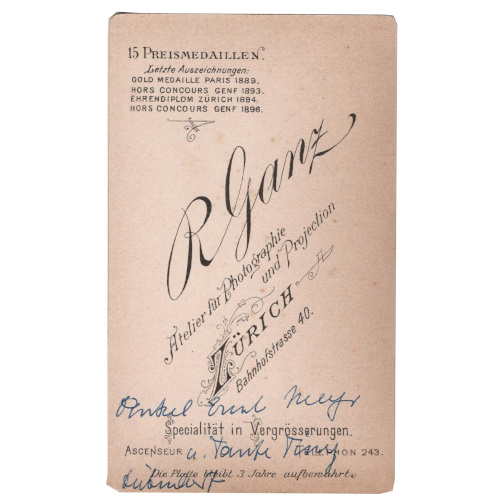 15 PREISMEDAILLEN.
Letzte Auszeichnungen:
GOLD MEDAILLE PARIS 1889.
HORS CONCOURS GENF 1893.
EHRENDIPLOM ZÜRICH 1894.
HORS CONCOURS GENF 1896.
R Ganz
Atelier für Photographie
und Projection
ZÜRICH
Bahnhofstrasse 40.
Onkel Ernst Meyer
Specialität in Vergrösserungen.
ASCENSEUR u. Tante Tony TELEPHON 243.
Die Platte bleibt 3 Jahre aufbewahrt.